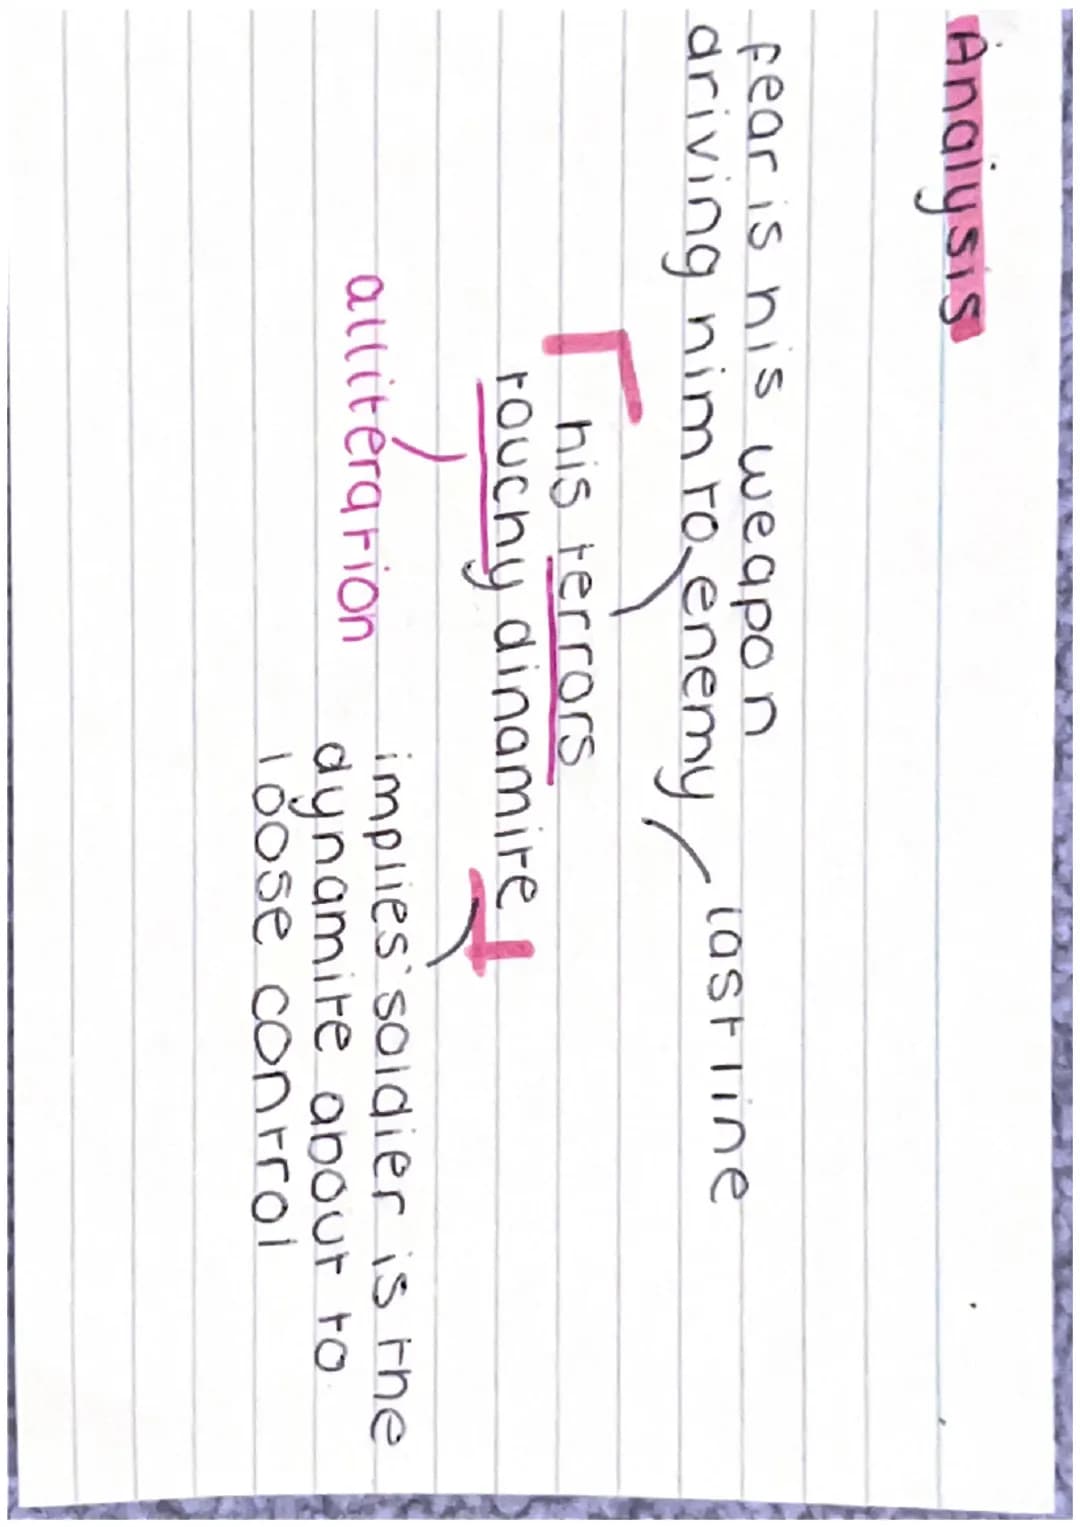 Analysis
fear is his weapon
driving him to enemy
last line
his terrors
touchy dinamite
alliteration
implies soldier is the
dynamite about to
loose control